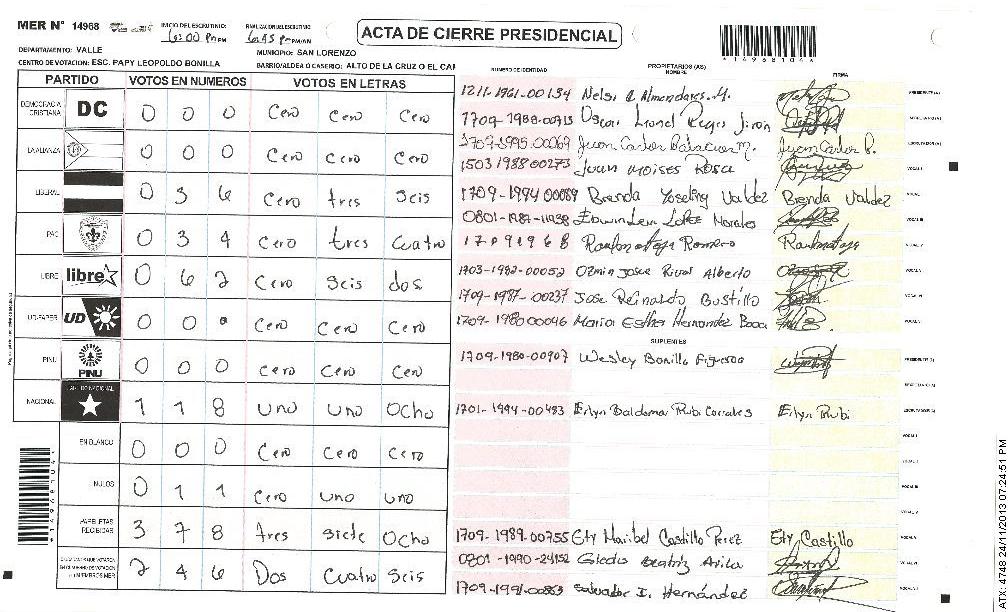 MER N° 14968 INICIO DEL ESCRUTINIO: 6:00 Pm PM FINALIZACION DEL ESCRUTINIO: 6:45 P PM/AM ACTA DE CIERRE PRESIDENCIAL *149681041*
DEPARTAMENTO: VALLE MUNICIPIO: SAN LORENZO
CENTRO DE VOTACION: ESC. PAPY LEOPOLDO BONILLA BARRIO/ALDEA O CASERIO: ALTO DE LA CRUZ O EL CAR
PARTIDO VOTOS EN NUMEROS VOTOS EN LETRAS
DEMOCRACIA CRISTIANA DC 0 0 0 Cero Cero Cero
LA ALIANZA 0 0 0 Cero Cero Cero
LIBERAL 0 3 6 Cero tres seis
PAC 0 3 4 Cero tres cuatro
LIBRE libre 0 6 2 Cero seis dos
UD-FAPER UD 0 0 0 Cero Cero Cero
PINU PINU 0 0 0 Cero Cero Cero
NACIONAL PARTIDO NACIONAL 1 1 8 uno uno ocho
EN BLANCO 0 0 0 Cero Cero Cero
NULOS 0 1 1 Cero uno uno
PAPELETAS RECIBIDAS 3 7 8 tres siete ocho
2 4 6 Dos cuatro seis
NUMERO DE IDENTIDAD PROPIETARIOS (AS) NOMBRE FIRMA
1211-1961-00134 Nelsi A Almendares M. PRESIDENTE (A)
1709-1988-00913 Oscar Lionel Reyes Jiron SECRETARIO (A)
1709-1995-00069 Juan Carlos M. Juan Carlos B. ESCRUTADOR (A)
1503 1988 00273 Juan Moises Rosa VOCAL I
1709-1994 00089 Brenda Yoseling Valdez Brenda Valdez VOCAL II
0801-1987-11938 Edwin Lopez Morales VOCAL III
17091968 Romero VOCAL IV
1703-1982-00052 Ozmin Josue Rivas Alberto VOCAL V
1709-1987-00237 Jose Reinardo Bustillo VOCAL VI
1709-1980 00046 Maria Esther Hernandez VOCAL VII
SUPLENTES
1709-1980-00907 Wesley Bonilla Figueroa PRESIDENTE (A)
SECRETARIO (A)
1701-1994-00483 Erlyn Baldomar Rubi Corrales Erlyn Rubi ESCRUTADOR (A)
VOCAL I
VOCAL II
VOCAL III
VOCAL IV
1709-1989-00755 Ety Maribel Castillo Perez Ety Castillo VOCAL V
0801-1990-24152 Gledis Beatriz Avila VOCAL VI
1709-1991-00863 Salvador I. Hernández VOCAL VII
*149681041*
ATX-4748 24/11/2013 07:24:51 PM